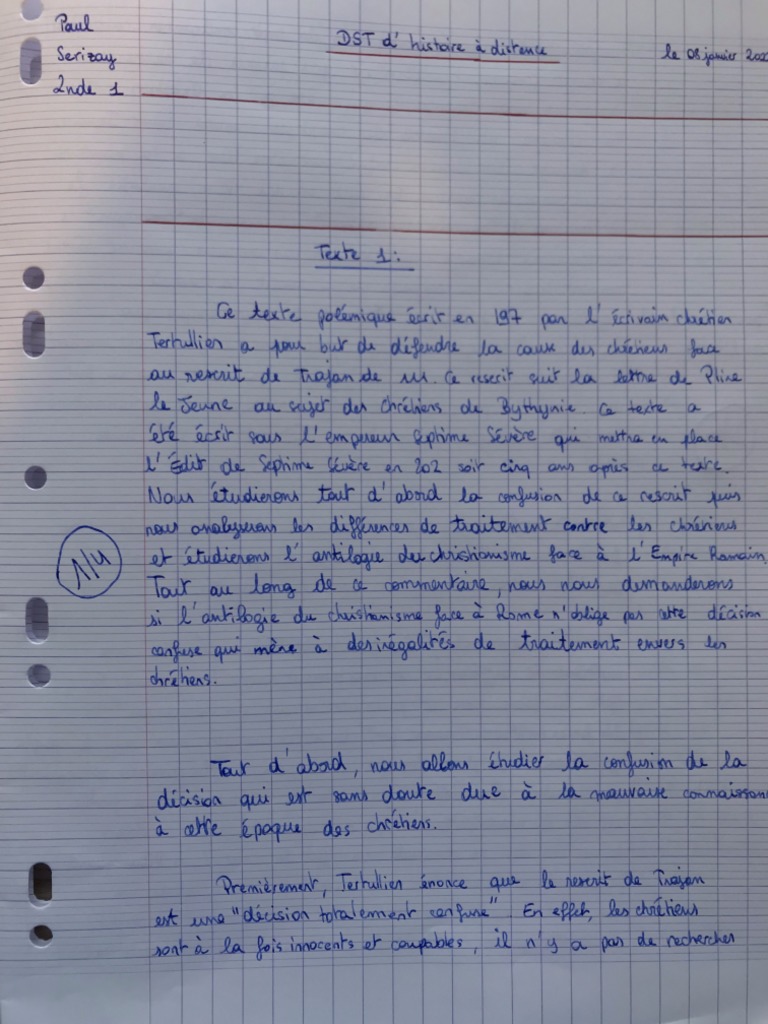 Paul
DST d'histoire à distance
le 08 janvier
Serizay
2nde 1
Texte 1:
Ce texte polémique écrit en 197 par l'écrivain chrétien
Tertullien a pour but de défendre la cause des chrétiens face
au rescrit de Trajan de 111. Ce rescrit suit la lettre de Pline
le Jeune au sujet des Chrétiens de Bythynie. Ce texte a
été écrit sous l'empereur Septime Sévère qui mettra en place
l'Édit de Septime Sévère en 202 soit cinq ans après ce texte.
Nous étudierons tout d'abord la confusion de ce rescrit puis
nous analyserons les différences de traitement contre les chrétiens
et étudierons l'antilogie du christianisme face à l'Empire Romain.
Tout au long de ce commentaire, nous nous demanderons
si l'antilogie du christianisme face à Rome n'oblige pas cette décision
confuse qui mène à des inégalités de traitement envers les
chrétiens.
1/4
Tout d'abord, nous allons étudier la confusion de la
décision qui est sans doute due à la mauvaise connaissan
à cette époque des chrétiens.
Premièrement, Tertullien énonce que le rescrit de Trajan
est une "décision totalement confuse" En effet, les chrétiens
sont à la fois innocents et coupables, il n'y a pas de recherches